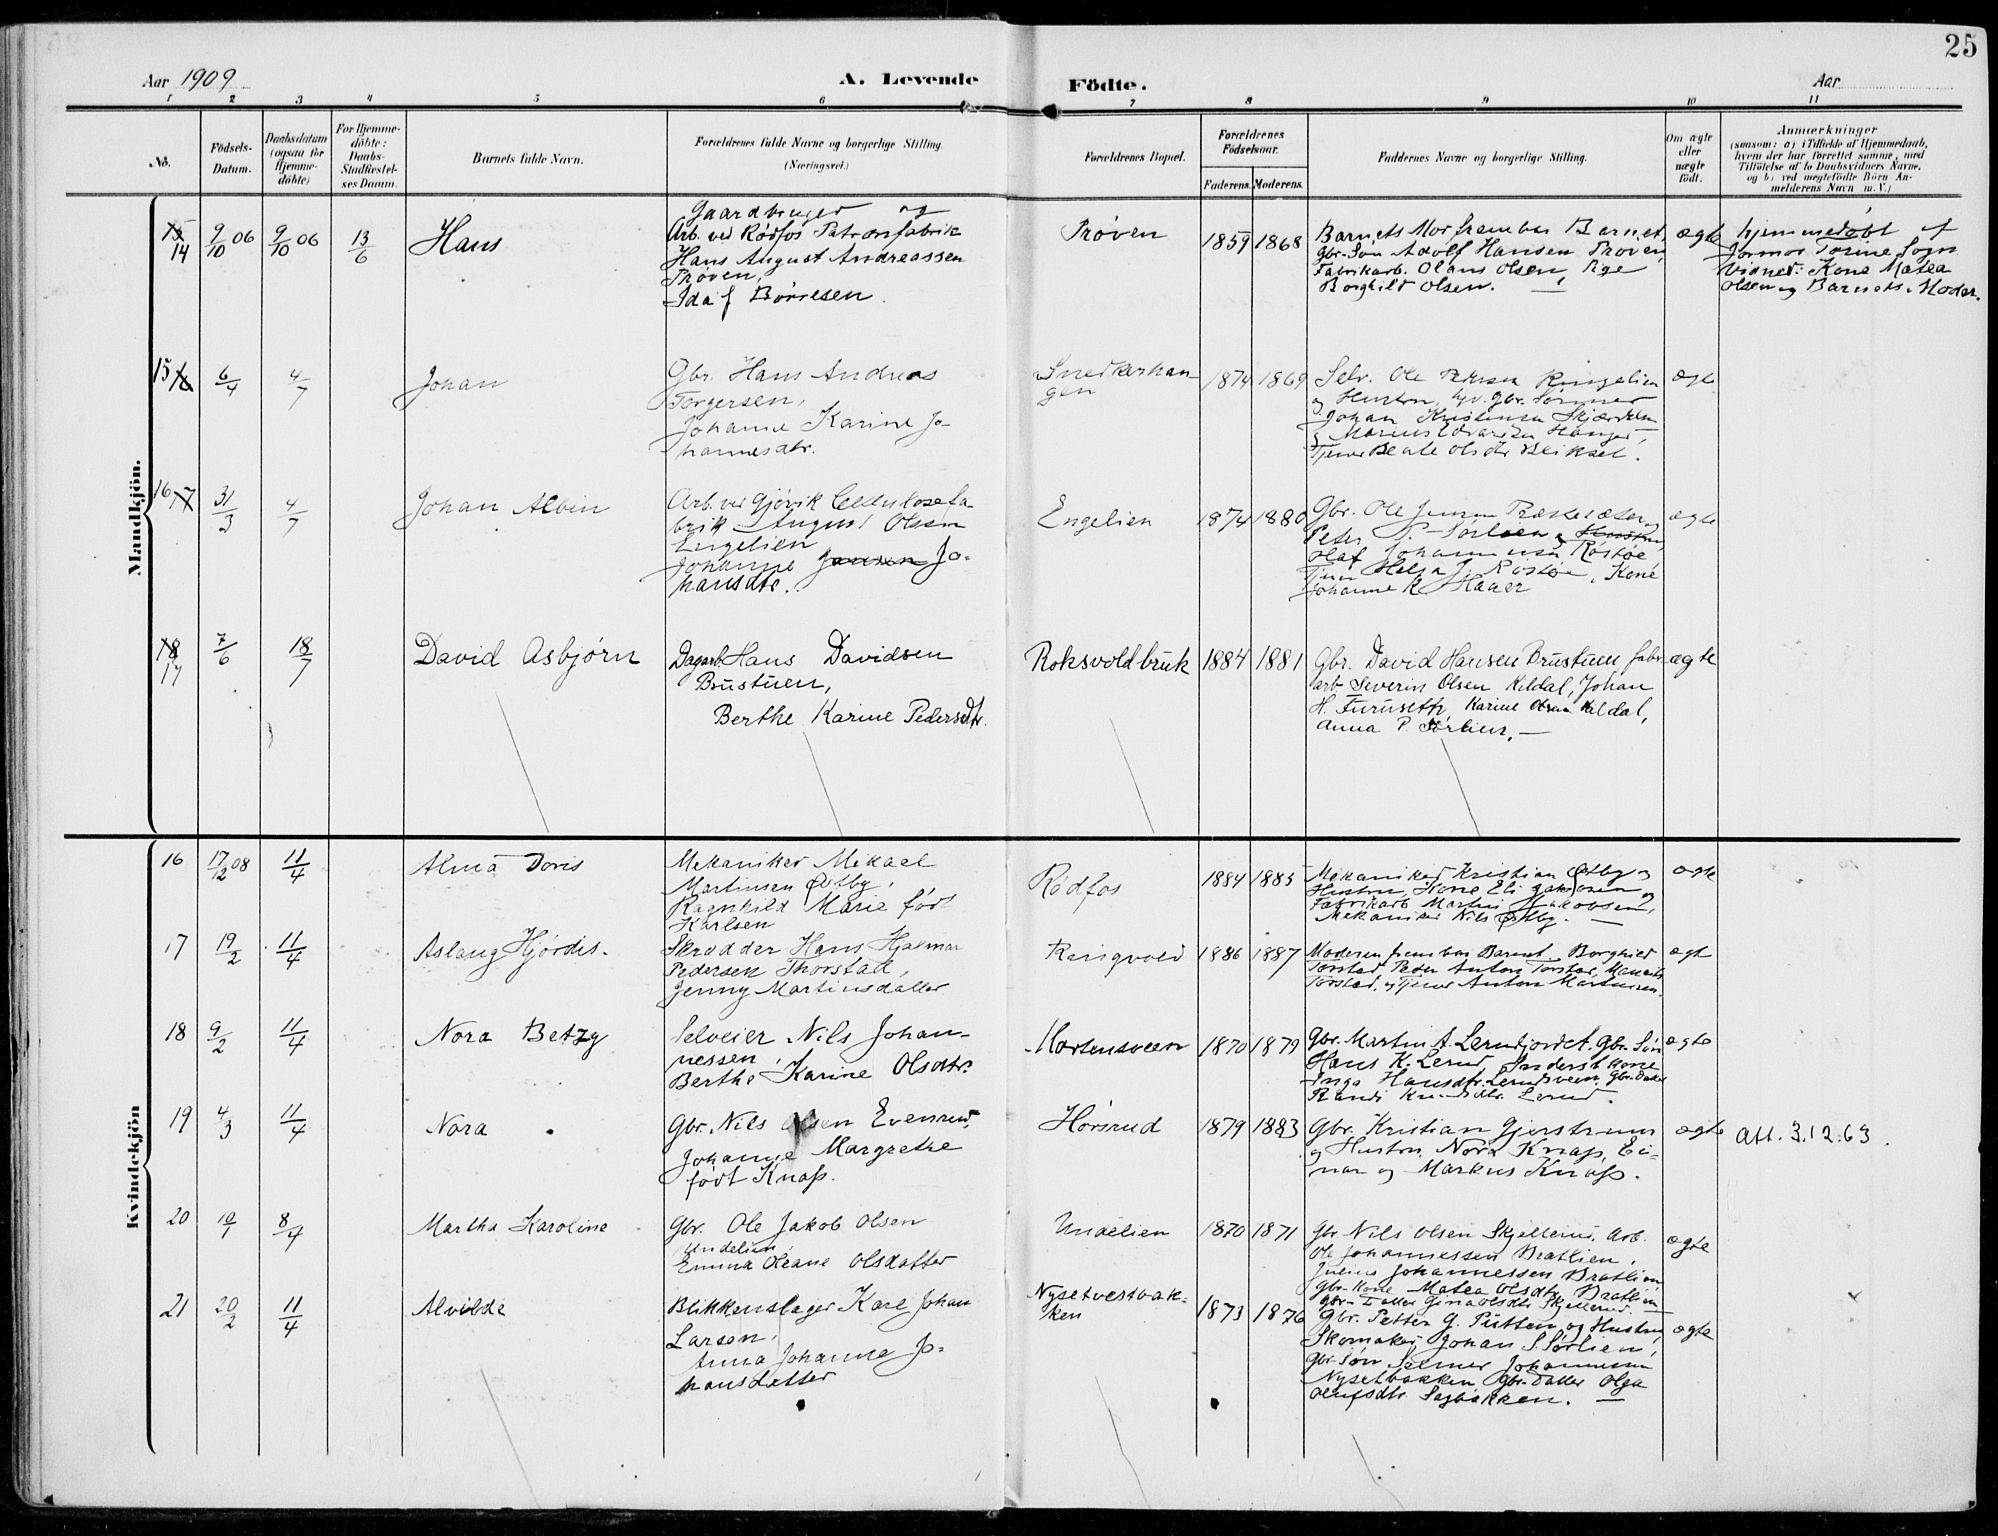 25
Aar 1909
A. Levende
Födte.
Aar
1 2 3 4 5 6 7 8 9 10 11
No.
Födsels-
Datum.
Daabsdatum
(ogsaa for
Hjemme-
döbte)
For Hjemme-
döbte:
Daabs-
Stadfæstel-
ses Datum.
Barnets fulde Navn.
Forældrenes fulde Navne og borgerlige Stilling.
(Næringsvei.)
Forældrenes Bopæl.
Forældrenes
Födselsaar.
Faderens. Moderens.
Faddernes Navne og borgerlige Stilling.
Om ægte
eller
uægte
födt.
Anmærkninger
(saasom: a) i Tilfælde af Hjemmedaab,
hvem der har forrettet samme, med
Tilföielse af to Daabsvidners Navne,
og b) ved uægtefödte Börn An-
melderens Navn m. V.)
Mandkjön.
15
14
9/10 06
9/10 06
13/6
Hans
Gaardbruger og
Arb. ved Rødfos Patronfabrik
Hans August Andreassen
Prøven,
Ida f Børresen.
Prøven
1859 1868
Barnets Mor frembar Barnet,
Gbr. Søn Adolf Hansen Prøven,
Fabrikarb. Olaus Olsen, Pige
Borghild Olsen. —
ægte
hjemmedøbt af
Jormor Torine Sogn
Vidner: Kone Matea
Olsen og Barnets Moder.
15 16
6/4
4/7
Johan
Gbr. Hans Andreas
Torgersen,
Johanne Karine Jo-
hannesdtr.
Snedkerhau-
gen
1874 1869
Selv. Ole Ringelien
og Hustru,
Johan Kristiansen
Tjener Beate Olsdtr
ægte
16 17
31/3
4/7
Johan Albin
Arb. ved Gjøvik Cellulosefa-
brik August Olsen
Engelien
Johanne Jansen Jo-
hansdtr.
Engelien
1874 1880
Gbr. Ole Jensen
Peter P. Sørlien og Hustru,
Olaf Johannesen Røstøe
Helga J. Røstøe, Kone
Johanne K. Hager
ægte
18
17
7/6
18/7
David Asbjørn
Dagarb Hans Davidsen
Brustuen,
Berthe Karine Pedersdtr.
Roksvoldbruk
1884 1881
Gbr. David Hansen Brustuen fabr
arb Severin Olsen Kildal, Johan
H. Furuseth, Karine Olsen Kildal,
Anna P. Sørlien. —
ægte
Kvindekjön
16
17/12 08
11/4
Alma Doris
Mekaniker Mikael
Martinsen Østby,
Ragnhild Marie født
Karlsen
Rødfos
1884 1885
Mekaniker Kristian Østby og
Hustru, Kone Eli Jakobsen og
Fabrikarb Martin Jakobsen,
Mekaniker Nils Østby. —
ægte
17
19/2
11/4
Aslaug Hjørdis.
Skrædder Hans Hjalmar
Pedersen Thorstad,
Jenny Martinsdatter
Ringvold
1886 1887
Moderen frembar Barnet. Borghild
Torstad, Peder Anton Torstad,
Torstad, og Tjener Anton Martinsen.
ægt
18
9/2
11/4
Nora Betzy
Selveier Nils Johan-
nessen,
Berthe Karine Olsdtr.
Mortensveen
1870 1879
Gbr. Martin A. Lerudjordet. Gbr. Søn
Hans K. Lerud, Inderst Kone
Inga Hansdtr. Lerudsveen, Gbr. Datter
Randi Knudsdtr. Lerud.
ægte
19
4/3
11/4
Nora
Gbr. Nils Olsen Evenrud,
Johanne Margrethe
født Knaps.
Hørsrud
1879 1883
Gbr. Kristian Gjerstrum
og Hustru, Nora Knaps, Ei-
nar og Markus Knaps.
ægte
Att. 3.12.63.
20
10/1
8/4
Martha Karoline
Gbr. Ole Jakob Olsen
Undelien,
Emma Oleane Olsdatter
Undelien
1870 1871
Gbr Nils Olsen Skjellerud, Arb.
Ole Johannessen Bratlien,
Julius Johannessen Bratlien,
Gbr. Kone Matea Olsdtr. Bratlien
Gbr. Datter Gina Olsdtr. Skjellerud.
ægte
21
20/2
11/4
Alvilde
Blikkenslager Karl Johan
Larsen,
Anna Johanne Jo-
hansdatter
Nysetvestbak-
ken
1873 1876
Gbr. Petter G. Pütten og Hustru,
Skomaker Johan S. Sørlien,
Gbr. Søn Selmer Johannessen
Nysetbakken Gbr. Datter Olga
Olufsdtr. Sagbakken. —
ægte